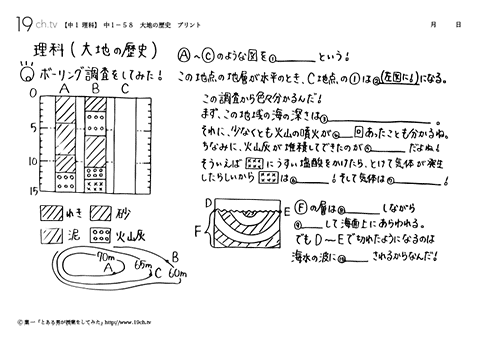 19ch.tv 【中1 理科】 中1-58 大地の歴史 プリント 月 日
理科(大地の歴史)
ボーリング調査をしてみた!
A B C
0
5
10
15
れき 砂
泥 火山灰
70m
65m
60m
A
B
C
Ⓐ~Ⓒのような図を① という!
この地点の地層が水平のとき、C地点の①は②(左図に!)になる。
この調査から色々分かるんだ!
まず、この地域の海の深さは③ 。
それに、少なくとも火山の噴火が④ 回あったことも分かるね。
ちなみに、火山灰が堆積してできたのが⑤ だよね!
そういえば にうすい塩酸をかけたら、とけて気体が発生
したらしいから は⑥ !そして気体は⑦ !
D
E
F
Ⓕの層は⑧ しながら
⑨ して海面上にあらわれる。
でもD~Eで切れたようになるのは
海水の波に⑩ されるからなんだ!
© 葉一「とある男が授業をしてみた」http://www.19ch.tv